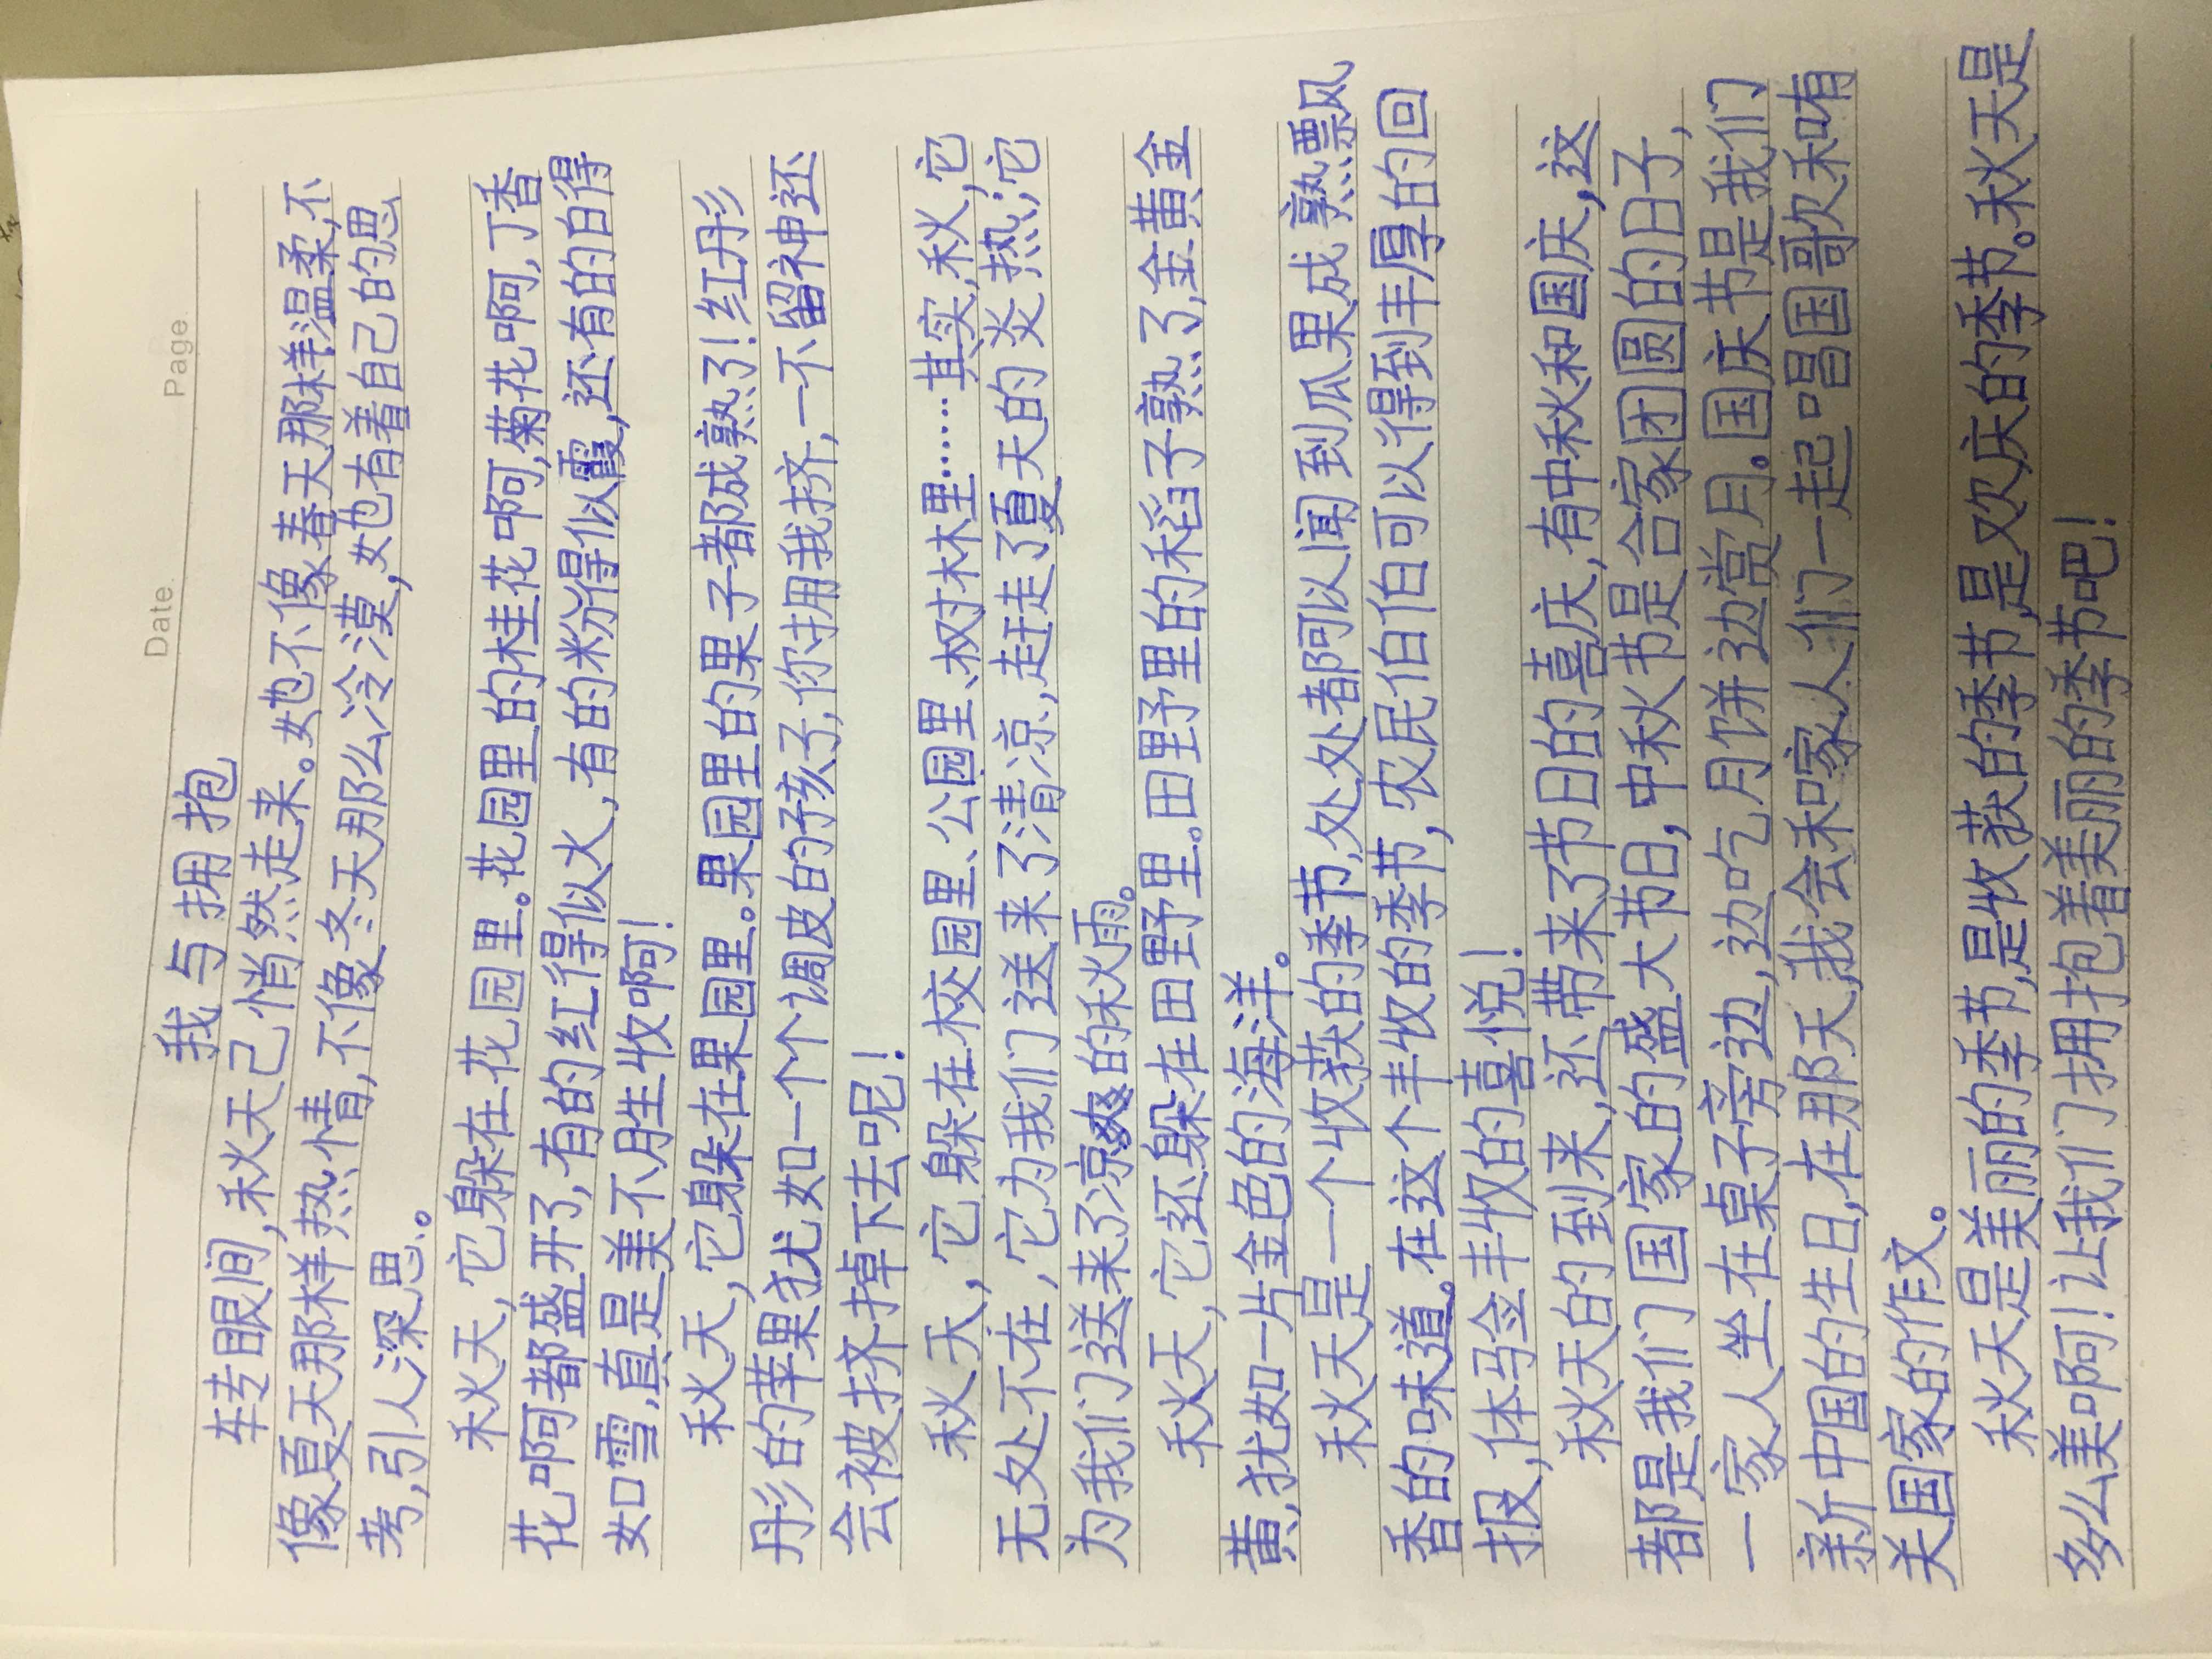 Date.
Page.
我与拥抱
转眼间,秋天己悄然走来。她不像春天那样温柔,不
像夏天那样热情,不像冬天那么冷漠,她也有着自己的思
考,引人深思。
秋天,它躲在花园里。花园里的桂花啊,菊花啊,丁香
花啊都盛开了,有的红得似火,有的粉得似霞,还有的白得
如雪,真是美不用生收啊!
秋天,它躲在果园里。果园里的果子都成熟了!红丹彤
丹彤的苹果犹如一个个调皮的孩子,你拥我挤,一不留神还
会被挤掉下去呢!
秋天,它躲在校园里、公园里、树林里……其实,秋,它
无处不在,它为我们送来了清凉,赶走了夏天的炎热;它
为我们送来了凉爽的秋雨。
秋天,它还躲在田野里。田野里的稻子熟了,金黄金
黄,犹如一片金色的海洋。
秋天是一个收获的季节,处处都可以闻到瓜果成熟飘
香的味道。在这个丰收的季节,农民伯伯可以得到丰厚的回
报,体验丰收的喜悦!
秋天的到来,还带来了节日的喜庆,有中秋和国庆,这
都是我们国家的盛大节日,中秋节是合家团圆的日子,
一家人坐在桌子旁边,边吃月饼边赏月。国庆节是我们
新中国的生日,在那天,我会和家人们一起唱国歌和有
关国家的作文。
秋天是美丽的季节,是收获的季节,是欢庆的季节。秋天是
多么美啊!让我们拥抱着美丽的季节吧!